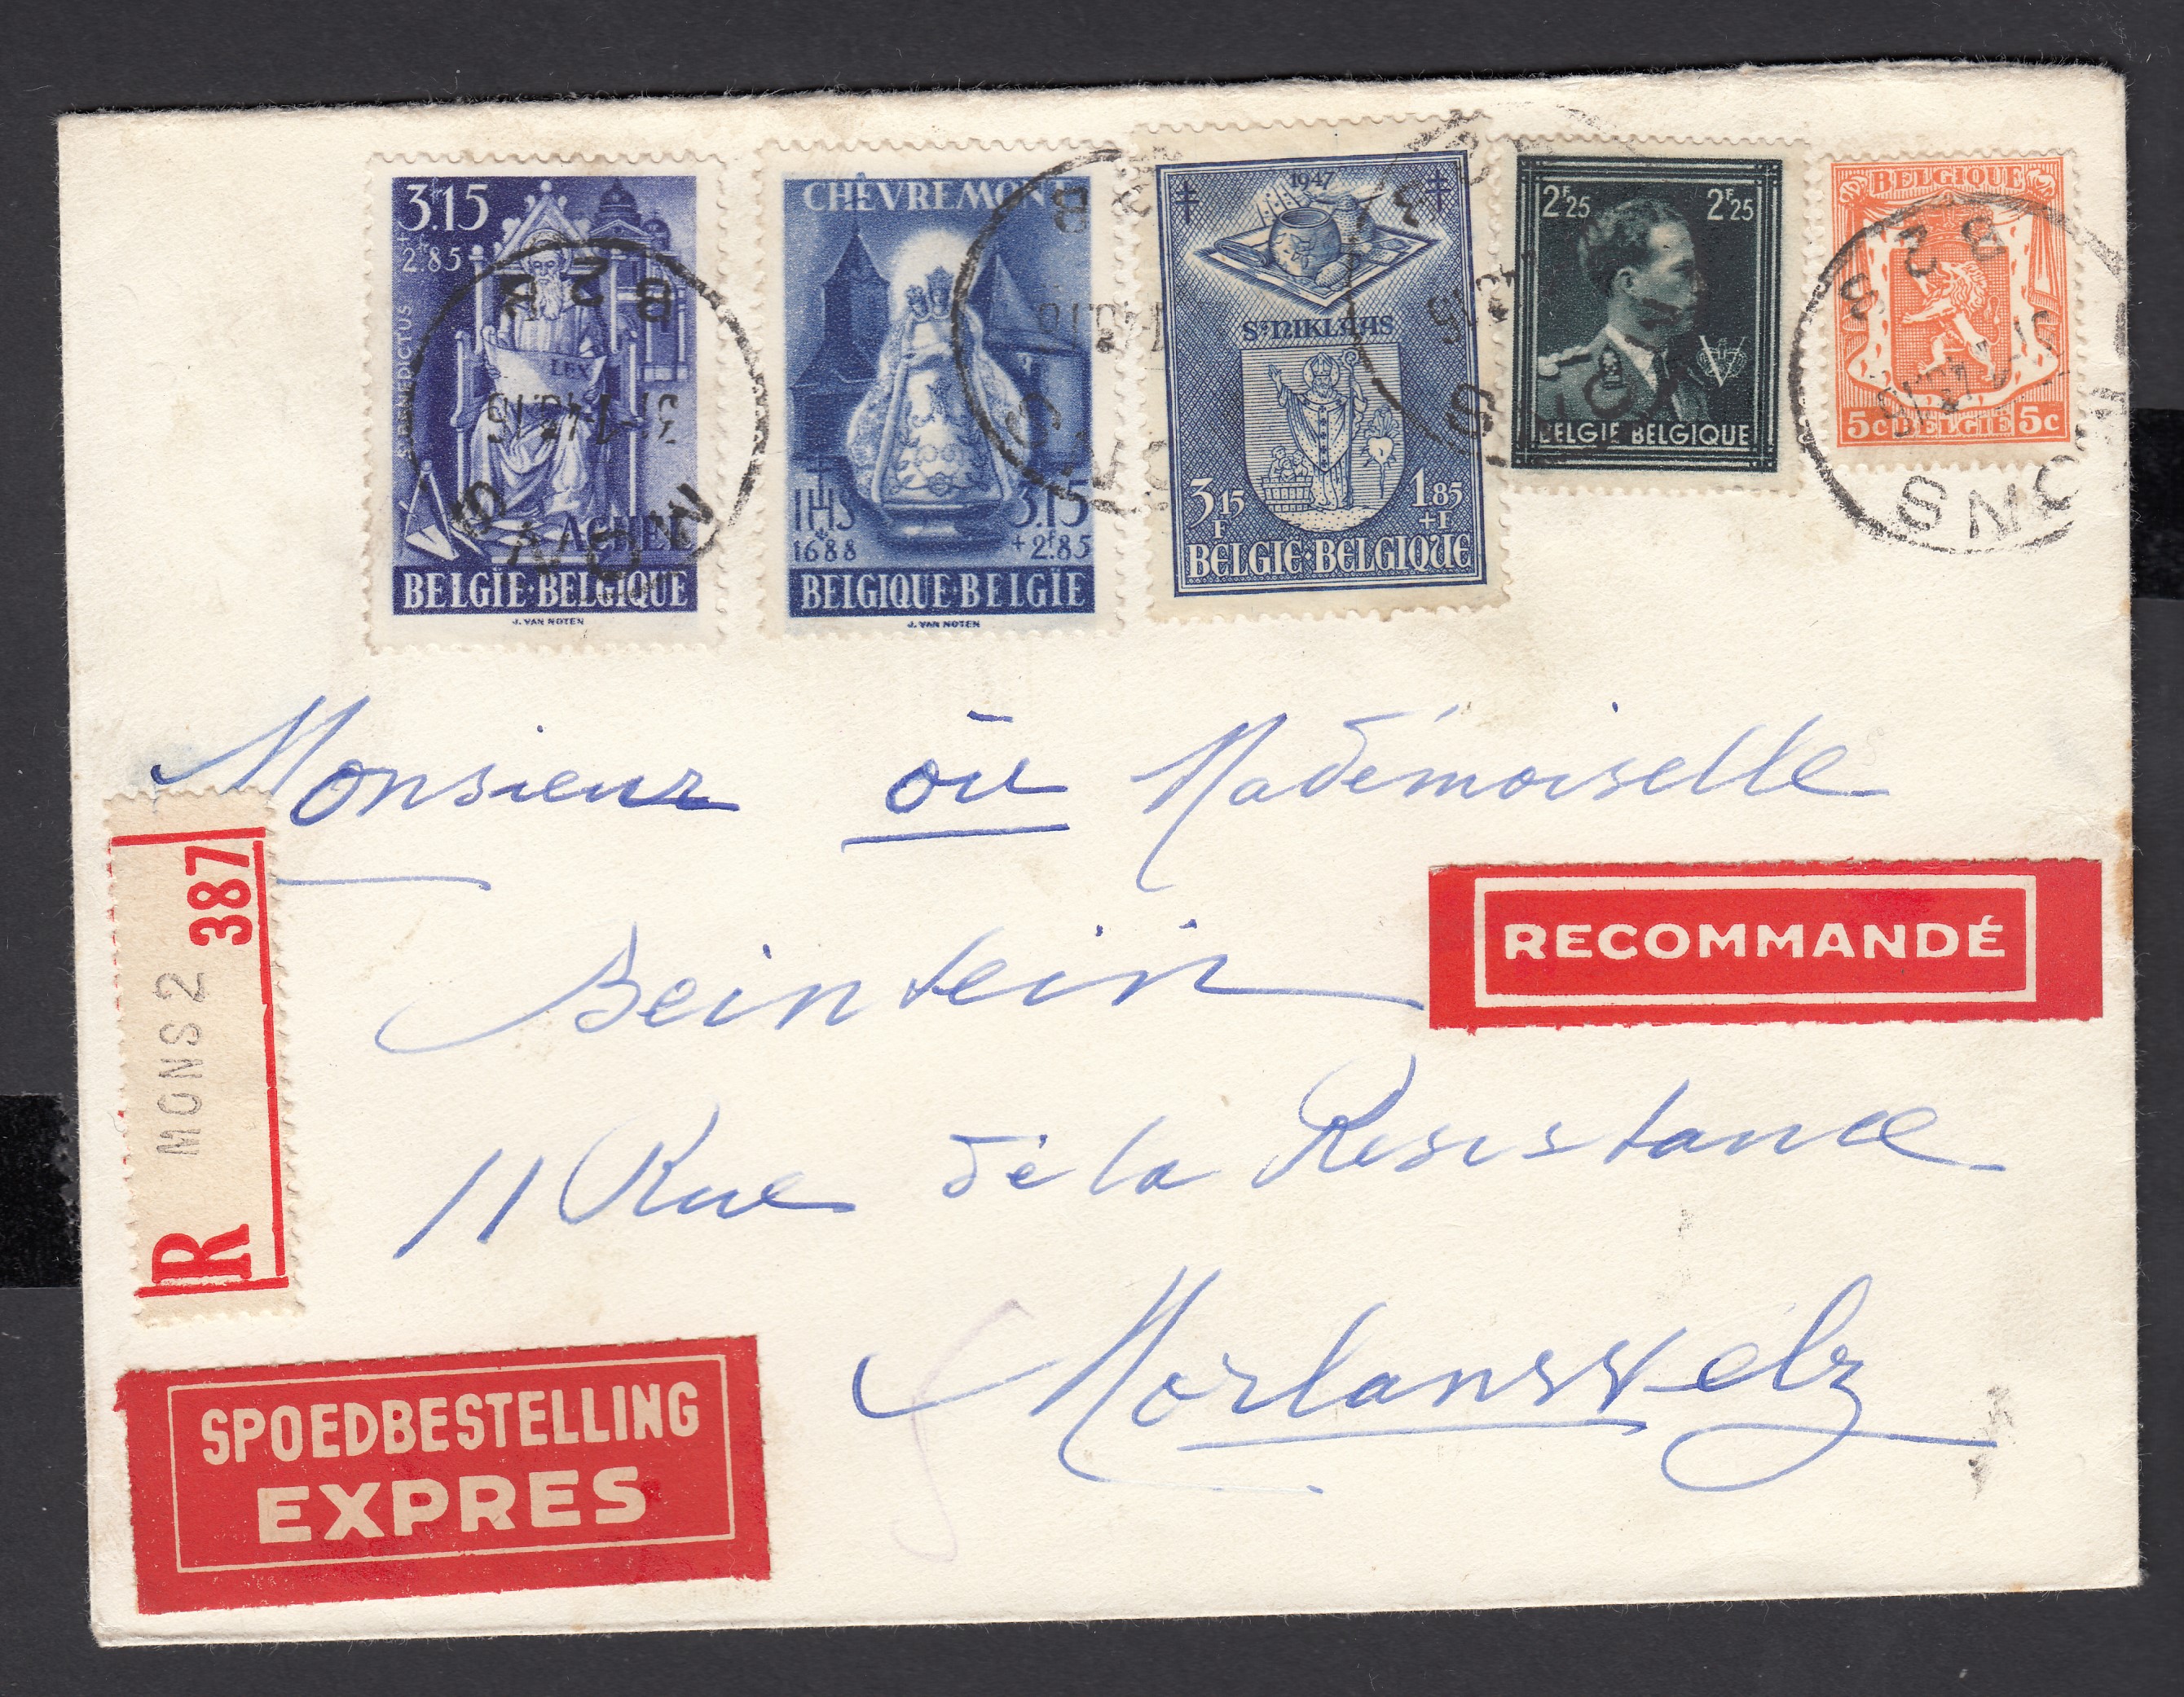 3F15
+2F85
S. BENEDICTUS
LEX
ACHEL
BELGÏE·BELGIQUE
J. VAN NOTEN
CHÈVREMONT
IHS
1688
3.15
+2F85
BELGIQUE·BELGÏE
J. VAN NOTEN
1947
St NIKLAAS
3F15
1.85
+F
BELGIE·BELGIQUE
2F25 2F25
V
BELGIE BELGIQUE
BELGIQUE
5c BELGIE 5c
MONS
B 2 B
MONS
MONS
MONS
Monsieur ou Mademoiselle
Beintein
11 Rue de la Résistance
Morlanwelz
RECOMMANDÉ
R MONS 2 387
SPOEDBESTELLING
EXPRES